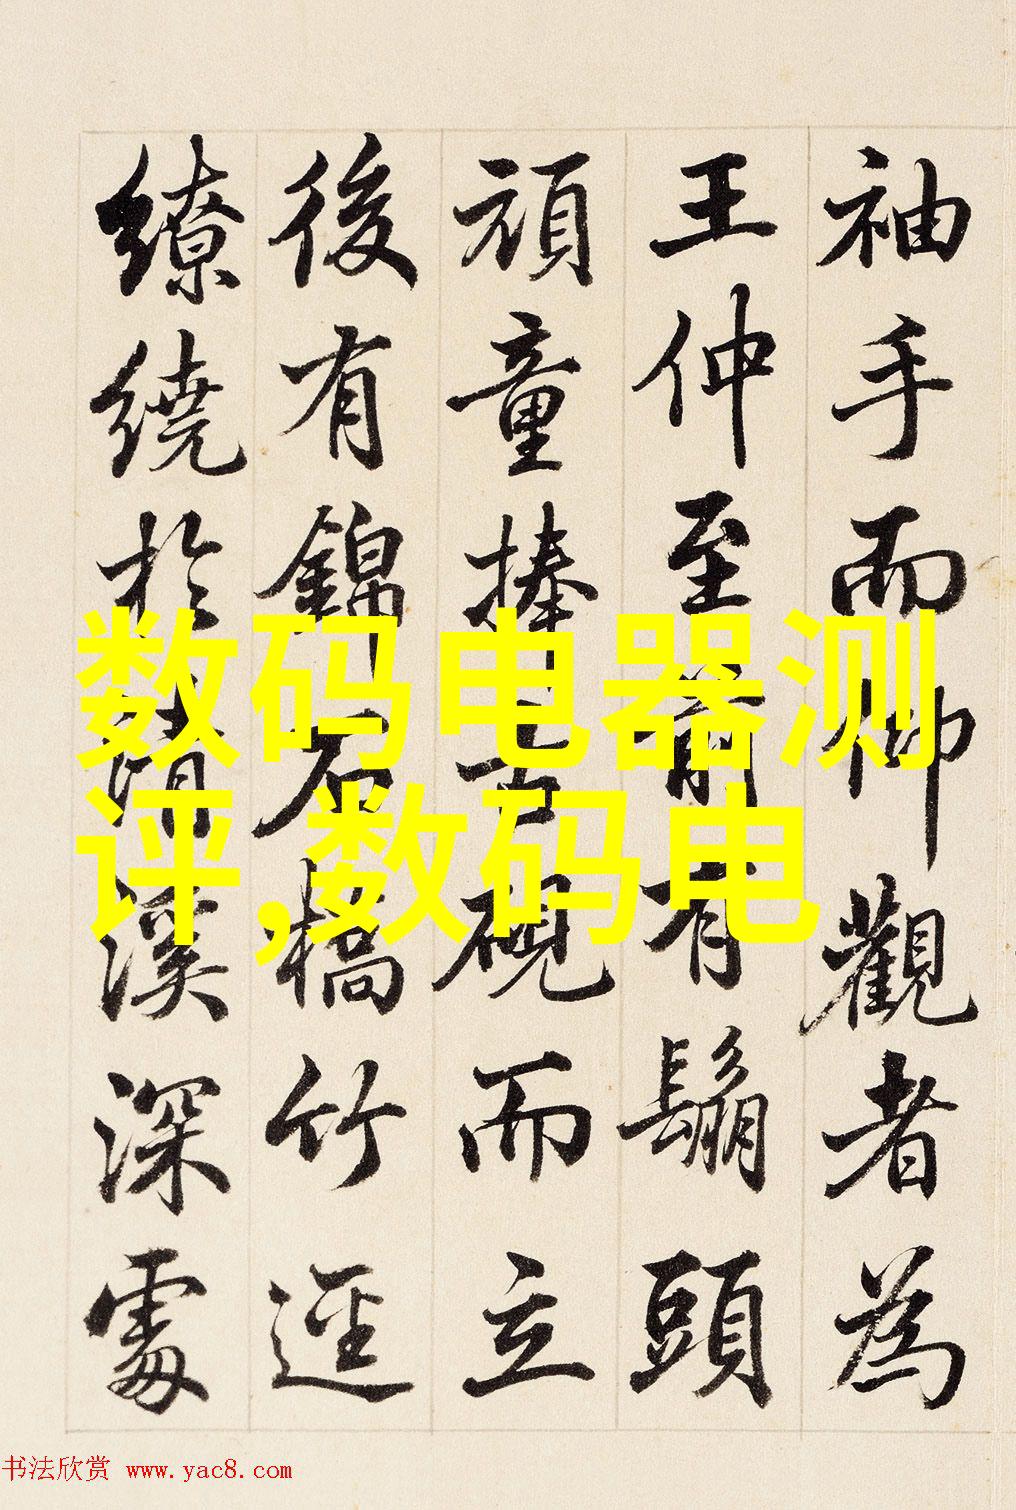 袖手而仰觀者為
王仲至前有鬅頭
頑童捧古硯而立
後有錦石橋竹逕
繚繞於清溪深處
数码电器测
评,数码电
书法欣赏 www.yac8.com